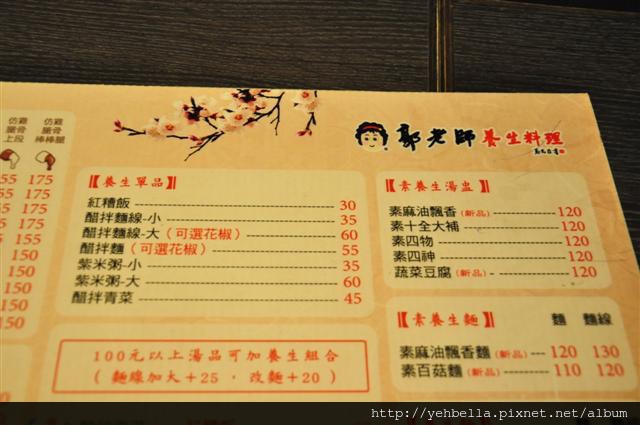 仿雞腿骨上段 仿雞腿骨棒棒腿
55 175
155
150
150
150
150
郭老師 養生料理
【養生單品】
紅糟飯 30
醋拌麵線-小 35
醋拌麵線-大(可選花椒) 60
醋拌麵(可選花椒) 55
紫米粥-小 35
紫米粥-大 60
醋拌青菜 45
100元以上湯品可加養生組合
( 麵線加大+25 , 改麵+20 )
【素養生湯盅】
素麻油飄香(新品) 120
素十全大補 120
素四物 120
素四神 120
蔬菜豆腐(新品) 120
【素養生麵】 麵 麵線
素麻油飄香麵(新品) 120 130
素百菇麵(新品) 110 120
http://yehbella.pixnet.net/album